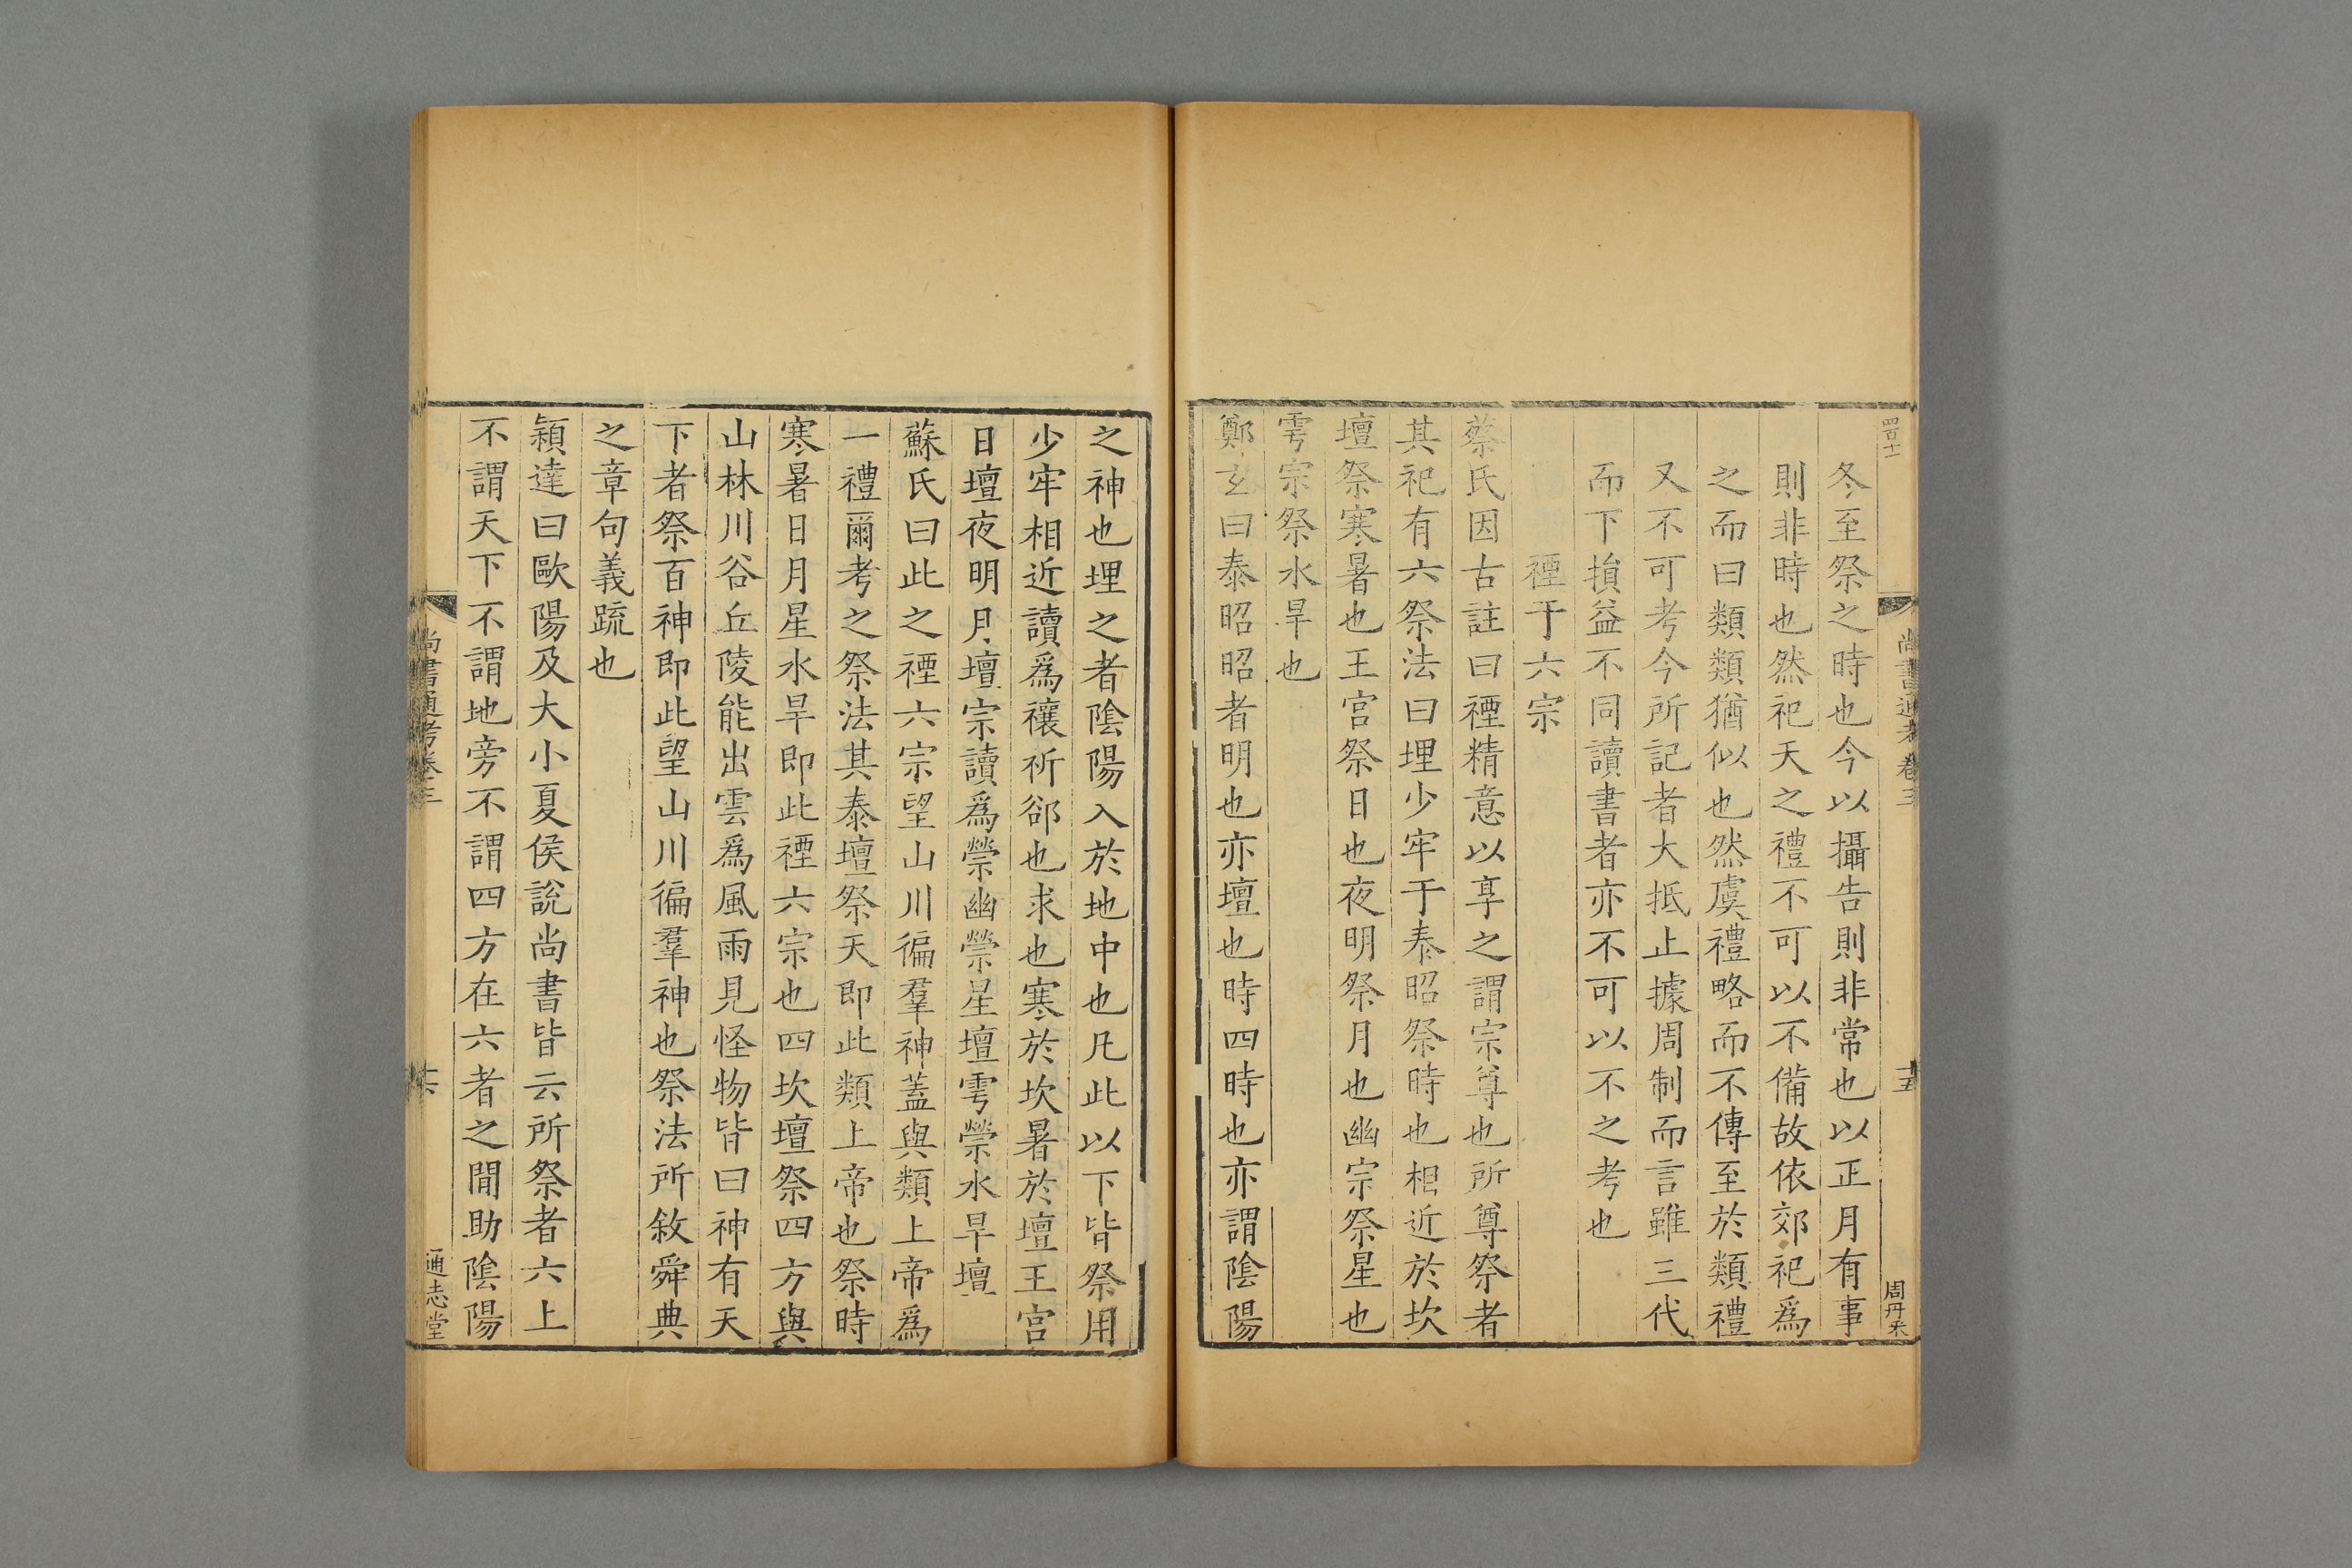 四百十一
尚書通考卷三
十五
周丹采
冬至祭之時也今以攝告則非常也以正月有事
則非時也然祀天之禮不可以不備故依郊祀爲
之而曰類類猶似也然虞禮略而不傳至於類禮
又不可考今所記者大抵止據周制而言雖三代
而下損益不同讀書者亦不可以不之考也
禋于六宗
蔡氏因古註曰禋精意以享之謂宗尊也所尊祭者
其祀有六祭法曰埋少牢于泰昭祭時也相近於坎
壇祭寒暑也王宮祭日也夜明祭月也幽宗祭星也
雩宗祭水旱也
鄭玄曰泰昭昭者明也亦壇也時四時也亦謂陰陽
之神也埋之者陰陽入於地中也凡此以下皆祭用
少牢相近讀爲禳祈郤也求也寒於坎暑於壇王宮
日壇夜明月壇宗讀爲禜幽禜星壇雩禜水旱壇
蘇氏曰此之禋六宗望山川徧羣神蓋與類上帝爲
一禮爾考之祭法其泰壇祭天即此類上帝也祭時
寒暑日月星水旱即此禋六宗也四坎壇祭四方與
山林川谷丘陵能出雲爲風雨見怪物皆曰神有天
下者祭百神即此望山川徧羣神也祭法所敘舜典
之章句義疏也
穎達曰歐陽及大小夏侯說尚書皆云所祭者六上
不謂天下不謂地旁不謂四方在六者之間助陰陽
尚書通考卷三
十六
通志堂